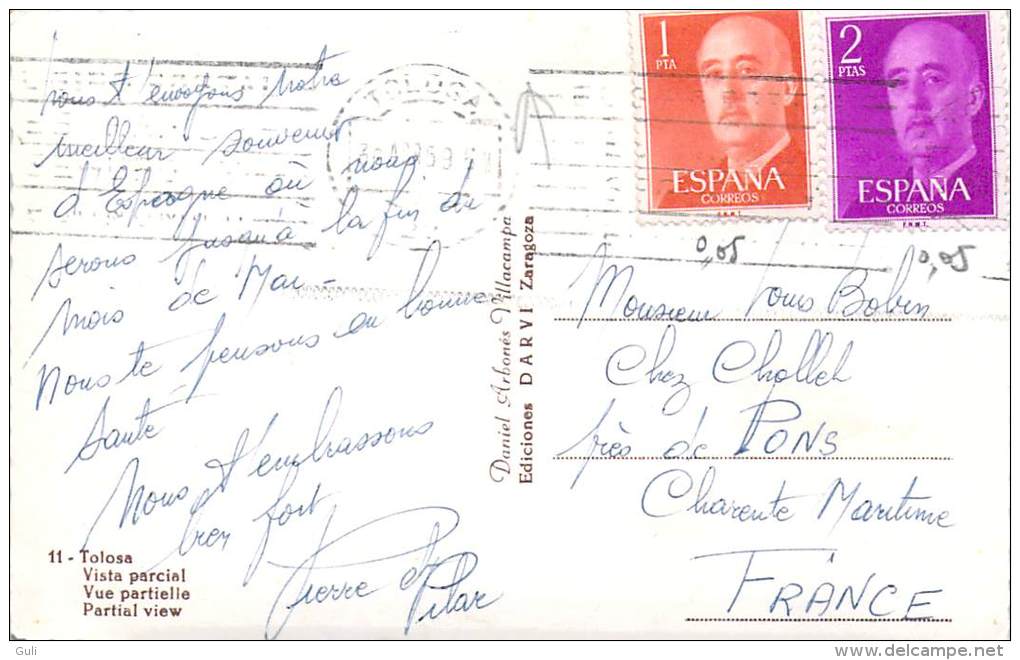 nous t'envoyons notre
meilleur souvenir
d'Espagne où nous
serons jusqu'à la fin du
mois de Mai -
Nous te pensons en bonne
santé
Nous t'embrassons
bien fort
Pierre et
Pilar
11 - Tolosa
Vista parcial
Vue partielle
Partial view
Daniel Arbonés Villacampa
Ediciones DARVI Zaragoza
1
PTA
ESPAÑA
CORREOS
F.N.M.T.
2
PTAS
ESPAÑA
CORREOS
F.N.M.T.
0,05
0,05
Monsieur Louis Bobin
Chez Chollet
près de PONS
Charente Maritime
FRANCE
Guli
delcampe.net